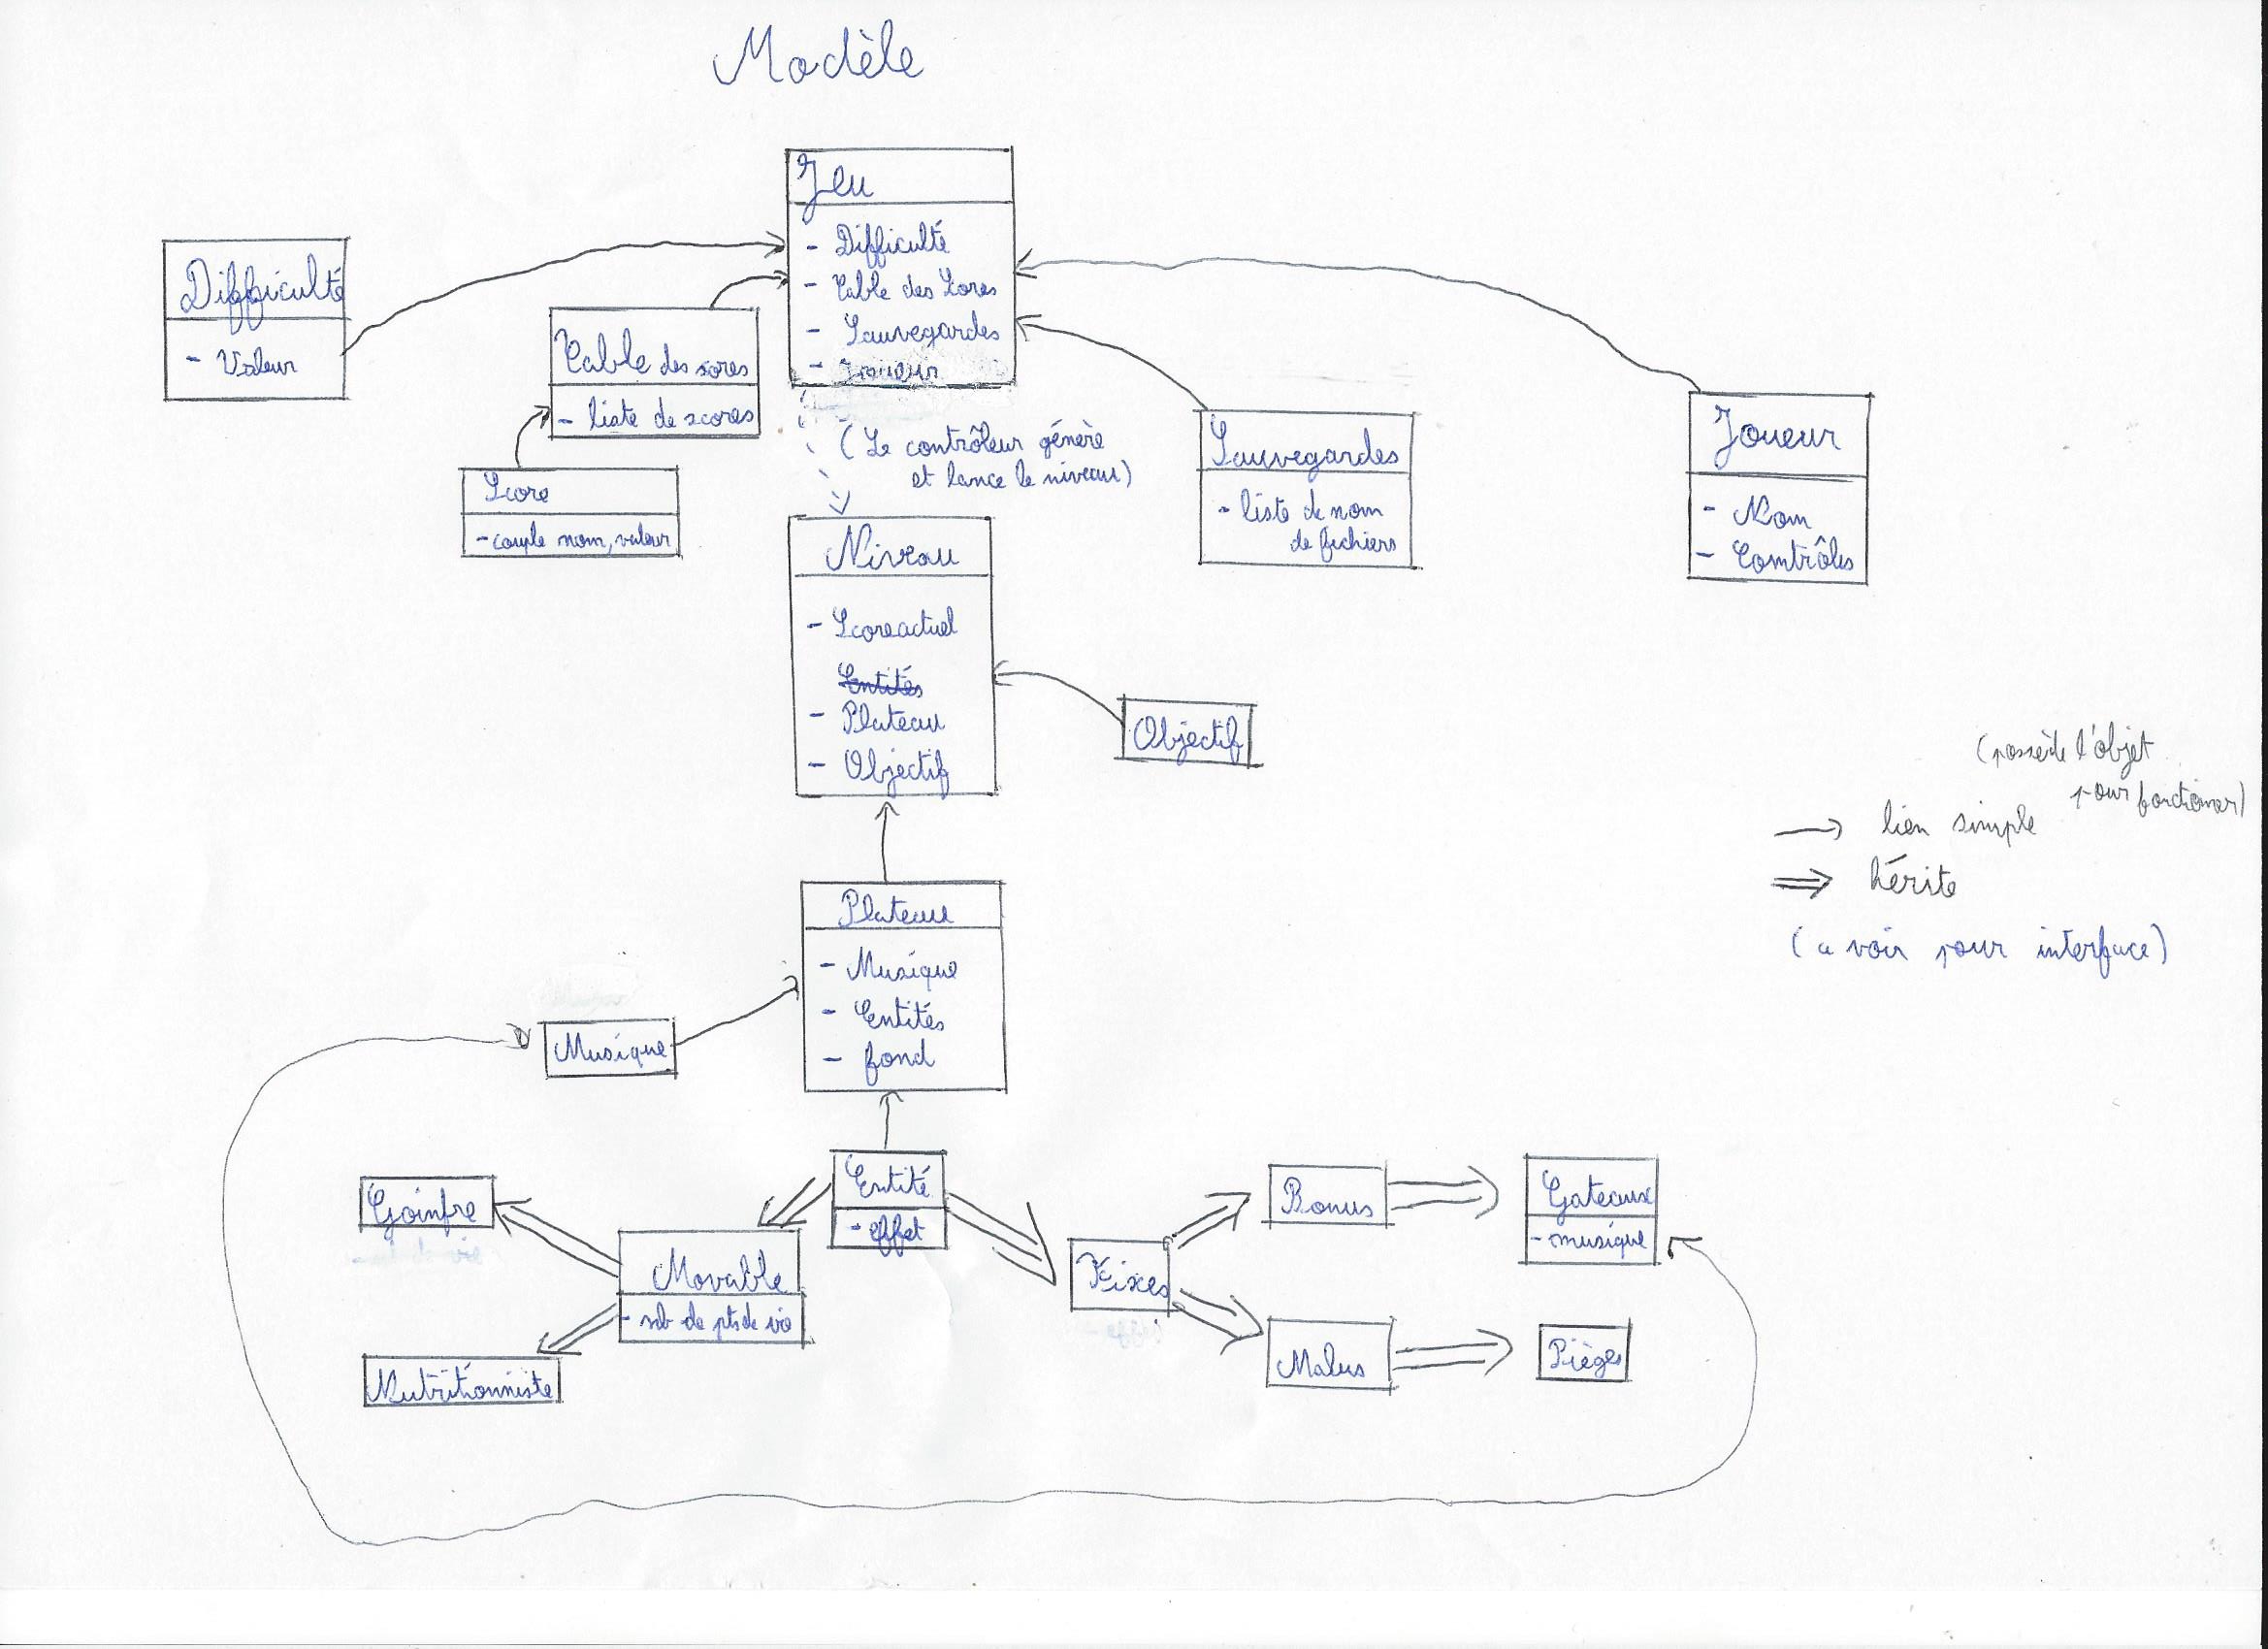 Modèle
Jeu
- Difficulté
- Table des Scores
- Sauvegardes
- Joueur
Difficulté
- Valeur
Table des scores
- liste de scores
Score
- couple nom, valeur
(Le contrôleur génère
et lance le niveau)
Sauvegardes
- liste de nom
de fichiers
Joueur
- Nom
- Contrôles
Niveau
- Score actuel
Entités
- Plateau
- Objectif
Objectif
(possède l'objet
pour fonctionner)
→ lien simple
⇒ hérite
(a voir pour interface)
Plateau
- Musique
- Entités
- fond
Musique
Entité
- effet
Goinfre
Movable
- nb de pts de vie
Nutritionniste
Fixes
Bonus
Gateaux
- musique
Malus
Pièges